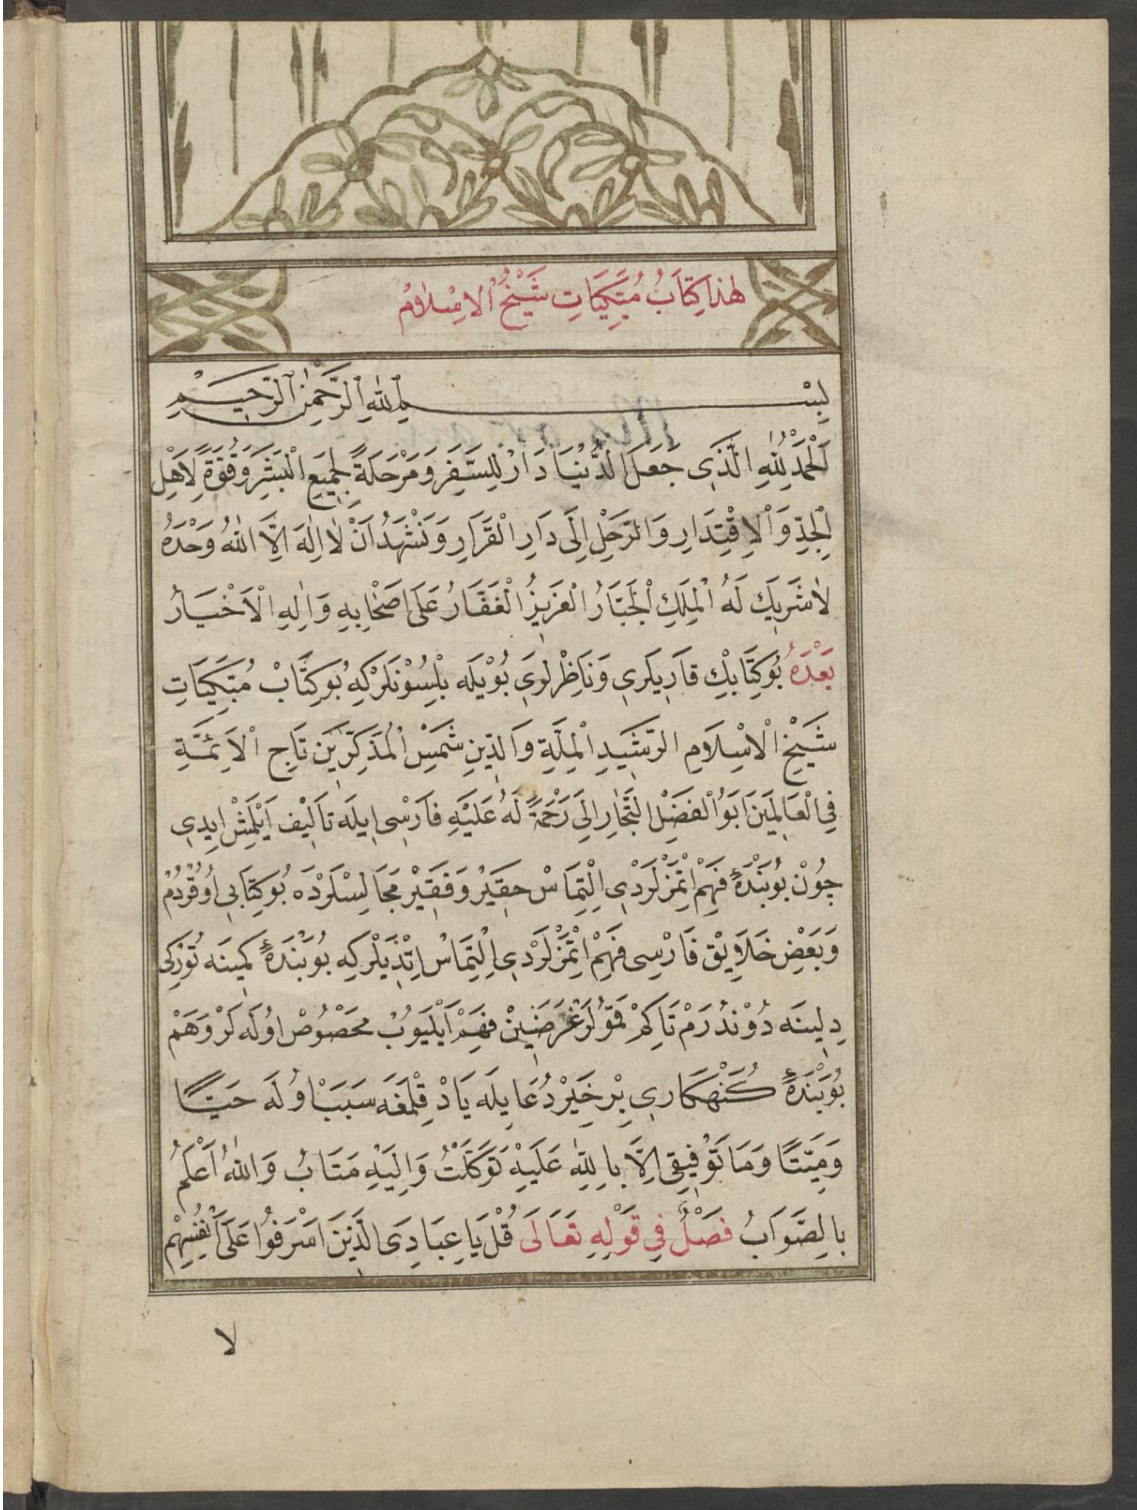 هٰذا كِتَابُ مُبَكِّيَاتِ شَيْخُ الْاِسْلَامْ
بِسْمِ اللهِ الرَّحْمٰنِ الرَّحِيمِ
اَلْحَمْدُ لِلّٰهِ الَّذَى جَعَلَ الدُّنْيَا دَارْ لِلسَّفَرِ وَمَرْحَلَةً لِجَمِيَعِ الْبَشَرِ وَقُوَّةً لِاَهْلِ
الْجِدِّ وَالْاِقْتِدَارِ وَالرَّحْلِ اِلَى دَارِ الْقَرَارِ وَنَشْهَدُ اَنْ لَا اِلٰهَ اِلَّا اللهُ وَحْدَهُ
لَا شَرِيكَ لَهُ الْمَلِكِ الْجَبَّارُ الْعَزِيزُ الْغَفَّارُ عَلَى اَصْحَابِهِ وَاٰلِهِ الْاَخْيَارُ
بَعْدَهُ بُو كِتَابِكْ قَارِيلَرِى وَنَاظِرْلَرِى بُوْيلَه بِلْسُوْنلَرْكِه بُو كِتَابْ مُبَكِّيَاتِ
شَيْخِ الْاِسْلَامِ الرَّشَيدِ الْمِلَّةِ وَالدِّينِ شَمْسْ الْمُذَكِّرَيَن تَاجِ الْاَئِمَّةِ
فِى الْعَالَمِينَ اَبُو الْفَضَلِ الْبُخَارِ اِلَى رَحْمَةً لَهُ عَلَيْهِ فَارْسِى اِيلَه تَاَلِيْف اَيْلَمِشْ اِيدِى
چُوْن بُو بَنْدَهٔ فَهِمْ اِتْمَزْلَرْدِى اِلْتِمَاسْ حَقِيرْ وَفَقِيرْ مَجَالِسْلَرْدَه بُو كِتَابِى اُوقُرْدُمْ
وَبَعْضِ خَلَايِقْ فَارْسِى فَهِمْ اِتْمَزْلَرْدِى اِلْتِمَاسْ اِتْدَيلَرْكِه بُو بَنْدَهٔ كَمِينَه تُوْرْكِى
دِلِينَه دُوْنْدُرَمْ تَاكِمْ قَمُوْلَرْ غَرَضَيِنْ فَهِمْ اَيْلَيُوبْ مَخْصُوْصْ اوُلَه لَرْ وَهَمْ
بُو بَنْدَهٔ كُنَهْكَارِى بِرْ خَيْرْ دُعَا يِلَه يَادْ قِلْمَغَه سَبَبْ اوُلَه حَيًّا
وَمَيِّتًا وَمَا تَوْفِيقِى اِلَّا بِاللّٰهِ عَلَيْهِ تَوَكَّلْتُ وَاِلَيْهِ مَتَابُ وَاللهُ اَعْلَمُ
بِالصَّوَابُ فَصْلٌ فِى قَوْلِهِ تَعَالَى قُلْ يَا عِبَادِىَ الَّذِينَ اَسْرَفُوا عَلَى اَنْفُسِهِمْ
لا